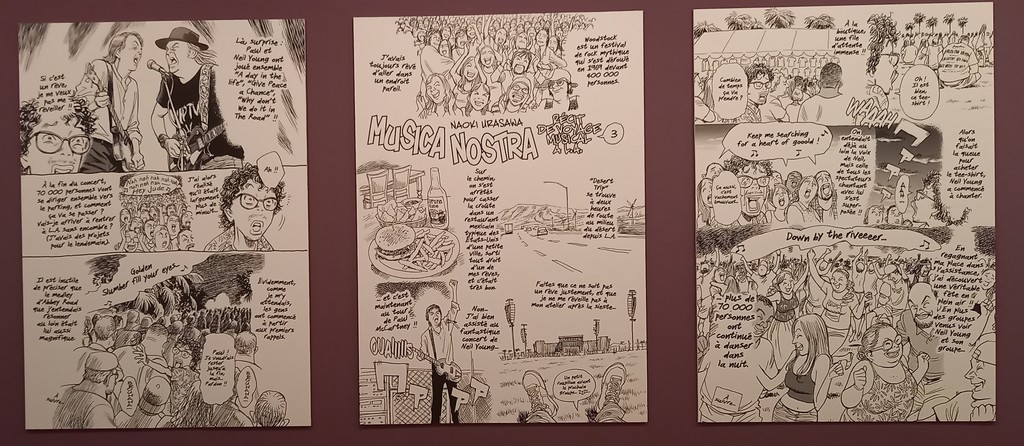 Là, surprise :
Paul et
Neil Young ont
joué ensemble
"A day in the
life", "Give Peace
a Chance",
"Why don't
we do it in
The Road" !!
Si c'est
un rêve,
je ne veux
pas me
réveiller !
Ah !!
À la fin du concert,
70 000 personnes vont
se diriger ensemble vers
le parking, et comment
ça va se passer ?
Vais-je arriver à rentrer
à L.A. sans encombre ?
(J'avais des projets
pour le lendemain).
Nah nah nah nah
nah nah nah
Hey Jude
J'ai alors
réalisé
qu'il était
largement
plus de
minuit.
Golden
Slumber fill your eyes...
Il est inutile
de préciser que
le medley
d'Abbey Road
que j'entendais
résonner
au loin était
lui aussi
magnifique.
Évidemment,
comme
je m'y
attendais,
les gens
ont commencé
à partir
aux premiers
rappels.
Paul !
Je voudrais
rester
jusqu'à
la fin
mais...
Pardon !!
J'avais
toujours rêvé
d'aller dans
un endroit
pareil.
Woodstock
est un festival
de rock mythique
qui s'est déroulé
en 1969 devant
400 000
personnes.
NAOKI URASAWA
MUSICA
NOSTRA
RÉCIT
DE VOYAGE
MUSICAL
À L.A.
3
Sur
le chemin,
on s'est
arrêtés
pour casser
la croûte
dans un
restaurant
mexicain
typique des
États-Unis
d'une petite
ville, sorti
tout droit
d'un de
mes rêves,
et c'était
très bon.
"Desert
Trip"
se trouve
à deux
heures
de route
au milieu
du désert
depuis L.A.
Et c'est
maintenant
au tour
de Paul
McCartney !!
Non...
J'ai bien
assisté au
fantastique
concert de
Neil Young...
Faites que ce ne soit pas
un rêve justement, et que
je ne me réveille pas à
mon atelier après la sieste...
Un petit
roupillon avant
le prochain
groupe... Zzz...
À la
boutique,
une file
d'attente
immense !!
Combien
de temps
ça va
prendre !
Oh !
Il est
bien,
ce tee-
shirt !
Keep me searching
for a heart of gooold !
Ça aussi,
c'est
vachement
émouvant !
On
entendait
déjà au
loin la voix
de Neil,
mais celle
de tous les
spectateurs
chantant
avec lui
s'est
super-
posée !!
Alors
qu'on
faisait
la queue
pour
acheter
le tee-shirt,
Neil Young
a commencé
à chanter.
Down by the riveeeer...
Plus de
70 000
personnes
ont
continué
à danser
dans
la nuit.
En
regagnant
ma place dans
l'assistance,
j'ai découvert
une véritable
fête en
plein air !!
En plus
des groupes
venus voir
Neil Young
et son
groupe...